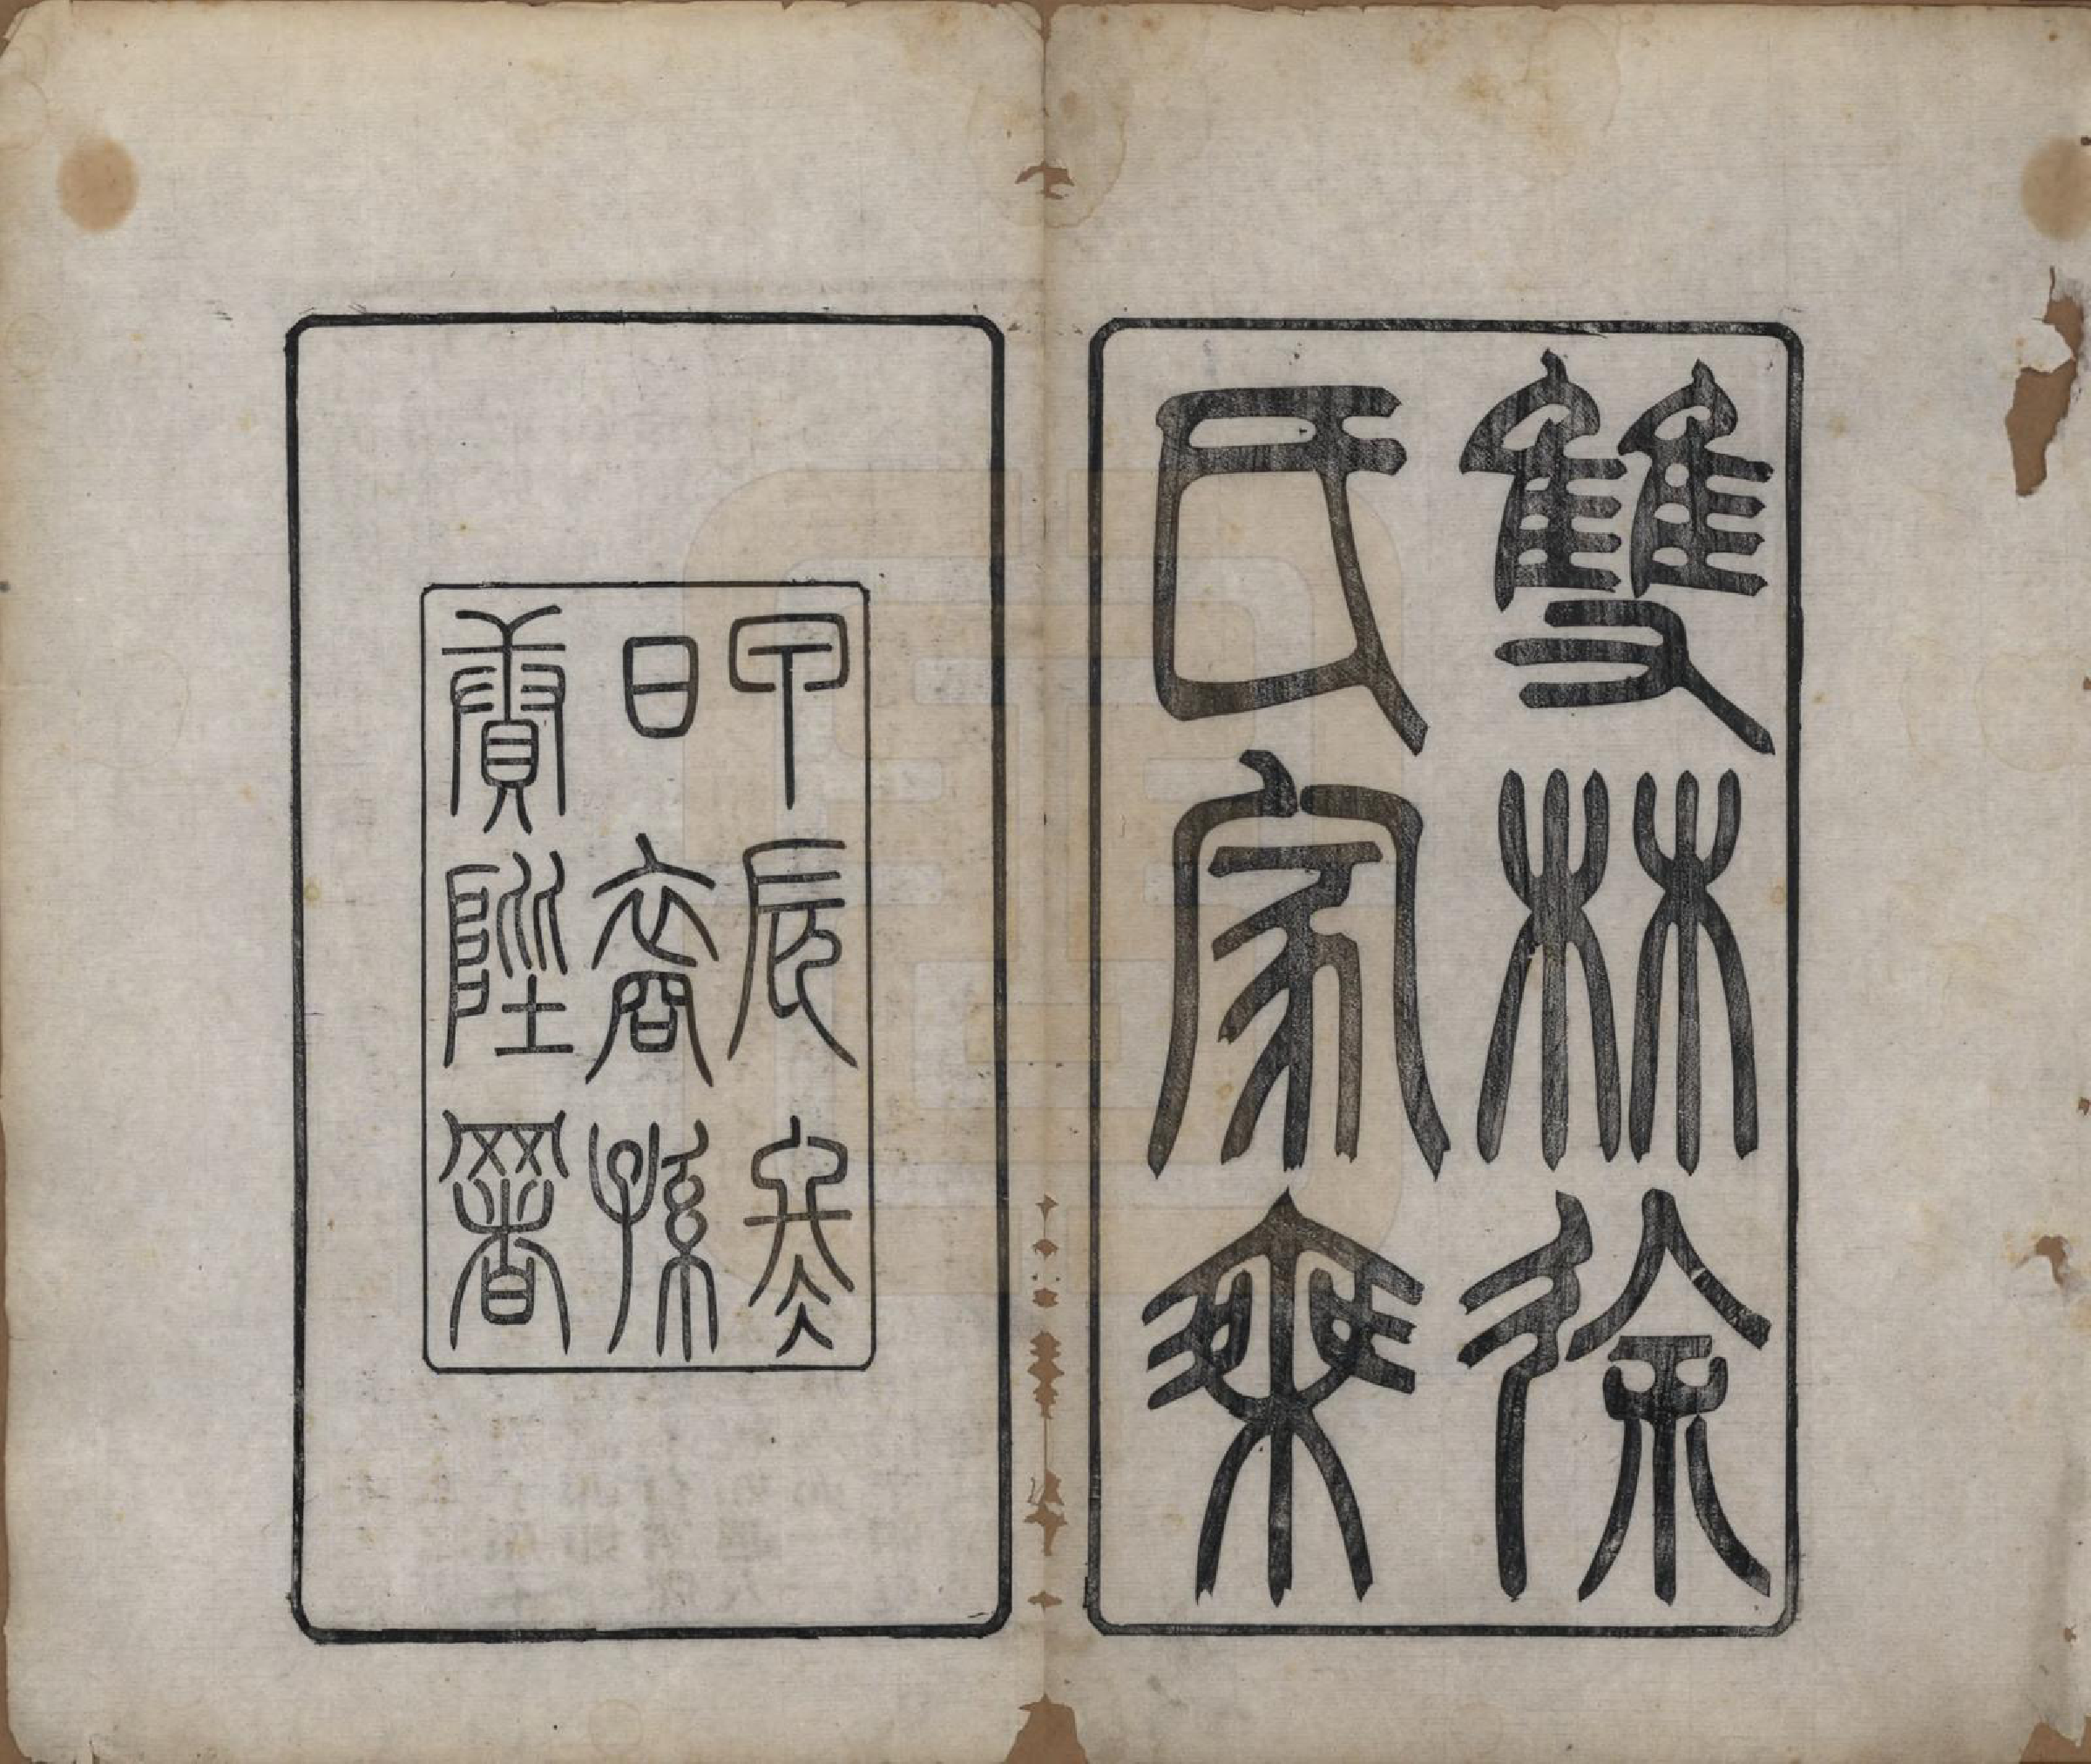 雙林徐
氏家乘
甲辰冬
日裔孫
賡陛署